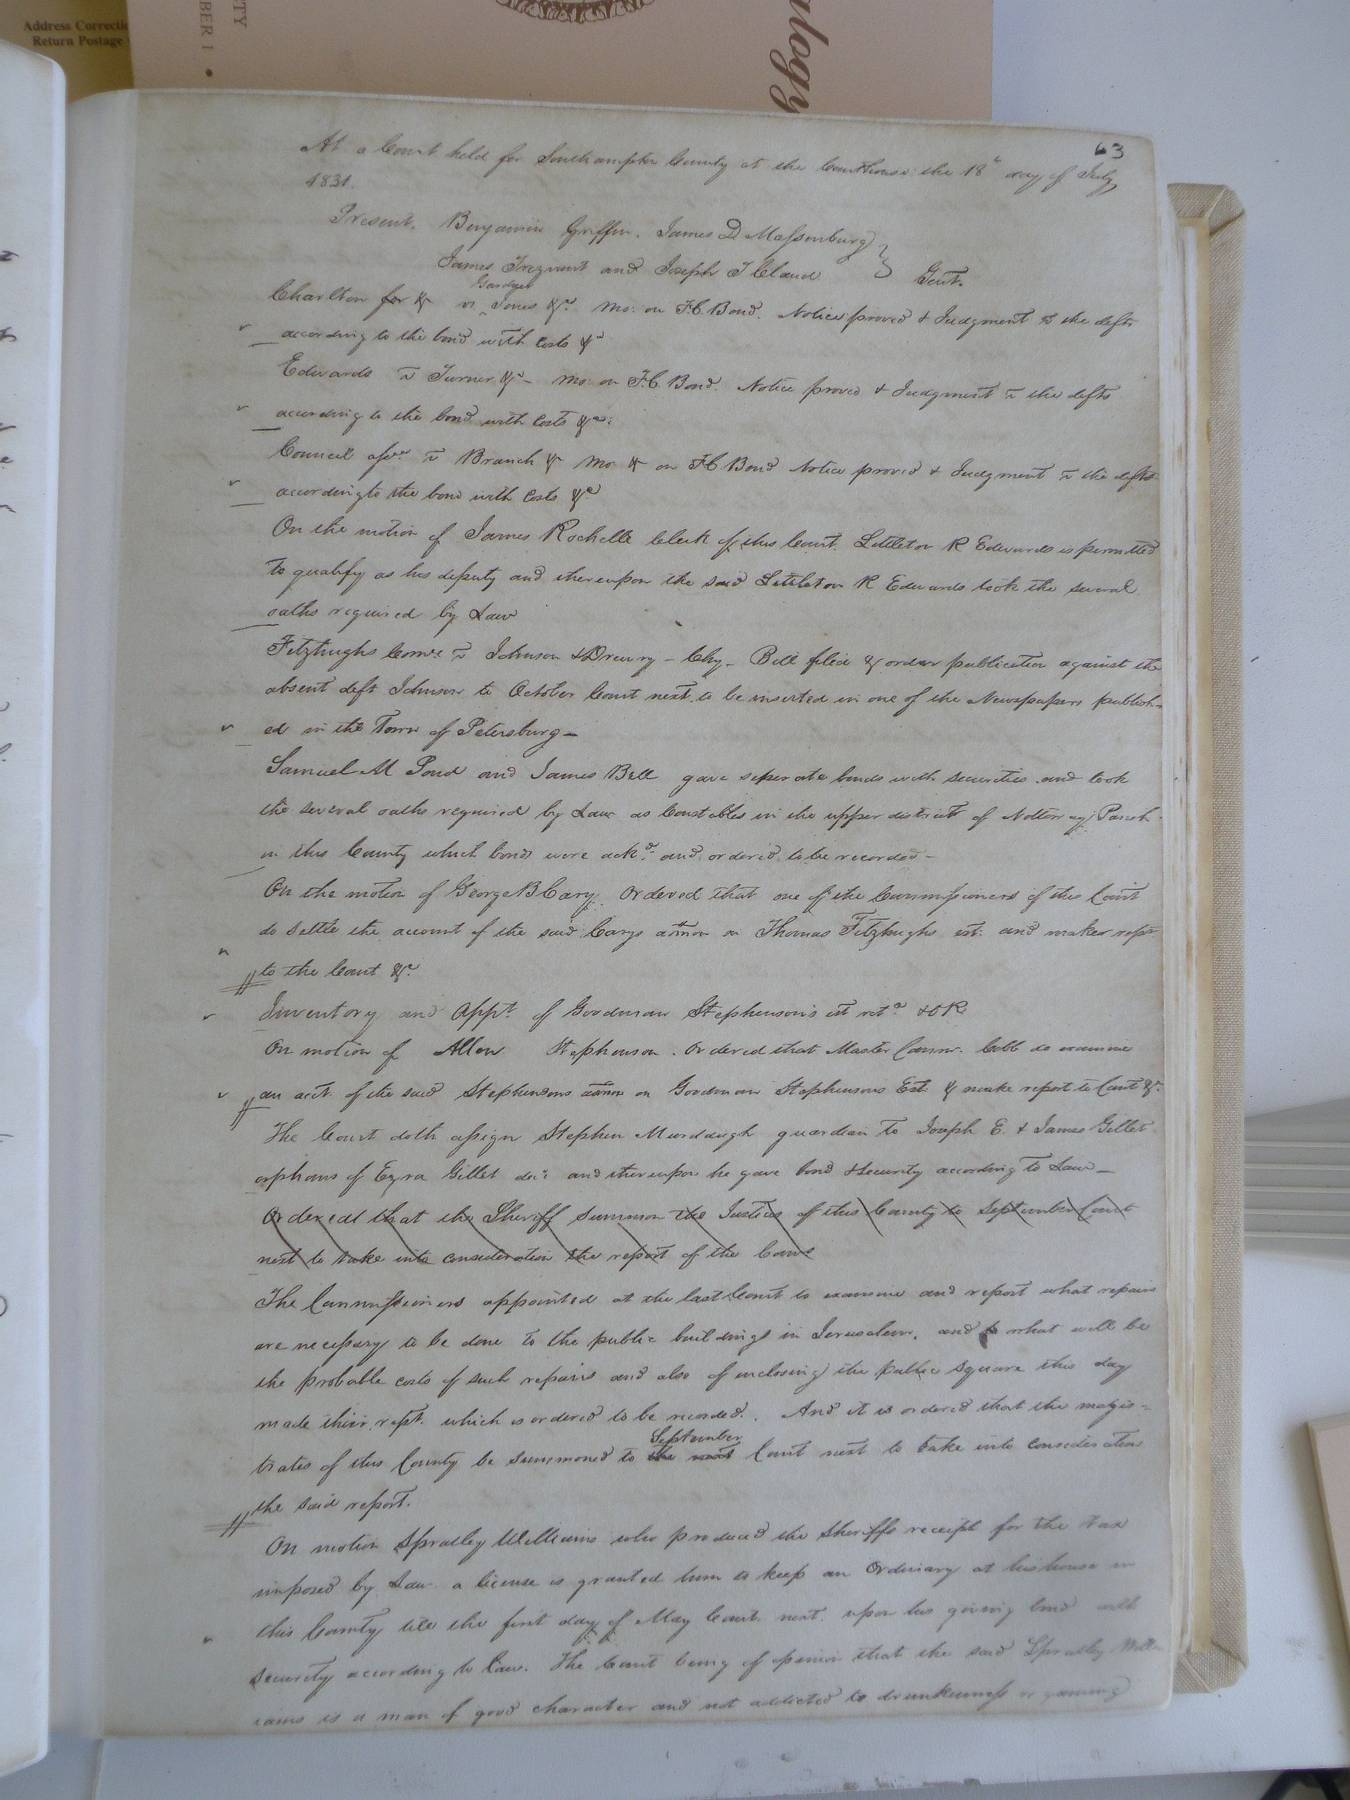 Address Correcti
Return Postage
TY
BER 1 •
alogy
63
At a Court held for Southampton County at the Courthouse the 18th day of July
1831.
Present. Benjamin Griffin. James D Massenburg
James Trezvant and Joseph T Claud } Gent.
Charlton for &c vs Gardner Jones &c. Mo. on F.C. Bond. Notice proved & Judgment vs the defts
according to the bond with Costs &c
Edwards vs Turner &c - Mo. on F.C. Bond. Notice proved & Judgment vs the defts
according to the bond with Costs &c.
Council vs Branch &c Mo & on FC Bond Notice proved & Judgment vs the defts
according to the bond with Costs &c
On the motion of James Rochelle Clerk of this Court. Littleton R Edwards is permitted
to qualify as his deputy and thereupon the said Littleton R Edwards took the several
oaths required by Law
Fitzhughs vs Johnson & Drewry - Chy - Bill filed & order publication against the
absent deft Johnson to October Court next to be inserted in one of the Newspapers publish-
ed in the Town of Petersburg -
Samuel M Pond and James Bell gave seperate bonds with securities and took
the several oaths required by Law as Constables in the upper district of Nottoway Parish
in this County which bonds were ackd. and ordered to be recorded -
On the motion of George B Cary. Ordered that one of the Commissioners of this Court
do settle the account of the said Carys admon on Thomas Fitzhughs est. and make rept
to the Court &c.
Inventory and Appt. of Goodman Stephenson's est retd. & OR
On motion of Allen Stephenson. Ordered that Master Commr. Cobb do examine
an acct. of the said Stephensons admon on Goodman Stephensons Est. & make report to Court &c.
The Court doth assign Stephen Murdaugh guardian to Joseph E. & James Gillet
orphans of Ezra Gillet decd. and thereupon he gave bond & security according to Law -
Ordered that the Sheriff summon the Justices of this County to September Court
next to take into consideration the report of the Coms
The Commissioners appointed at the last Court to examine and report what repairs
are necessary to be done to the public buildings in Jerusalem. and what will be
the probable costs of such repairs and also of enclosing the public square this day
made their rept. which is ordered to be recorded. And it is ordered that the magis-
trates of this County be summoned to the next September Court next to take into consideration
the said report.
On motion Spratley Williams who produced the Sheriffs receipt for the tax
imposed by Law a license is granted him to keep an Ordinary at his house in
this County till the first day of May Court next. upon his giving bond with
security according to Law. The Court being of opinion that the said Spratley Will-
iams is a man of good character and not addicted to drunkenness or gaming